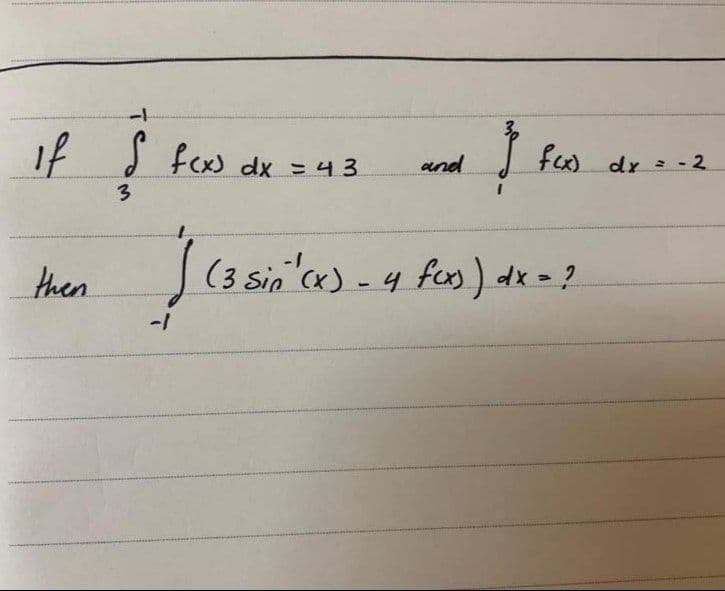 If ∫₃⁻¹ f(x) dx = 43 and ∫₁³ f(x) dx = -2
then ∫₋₁¹ (3 sin⁻¹(x) - 4 f(x)) dx = ?